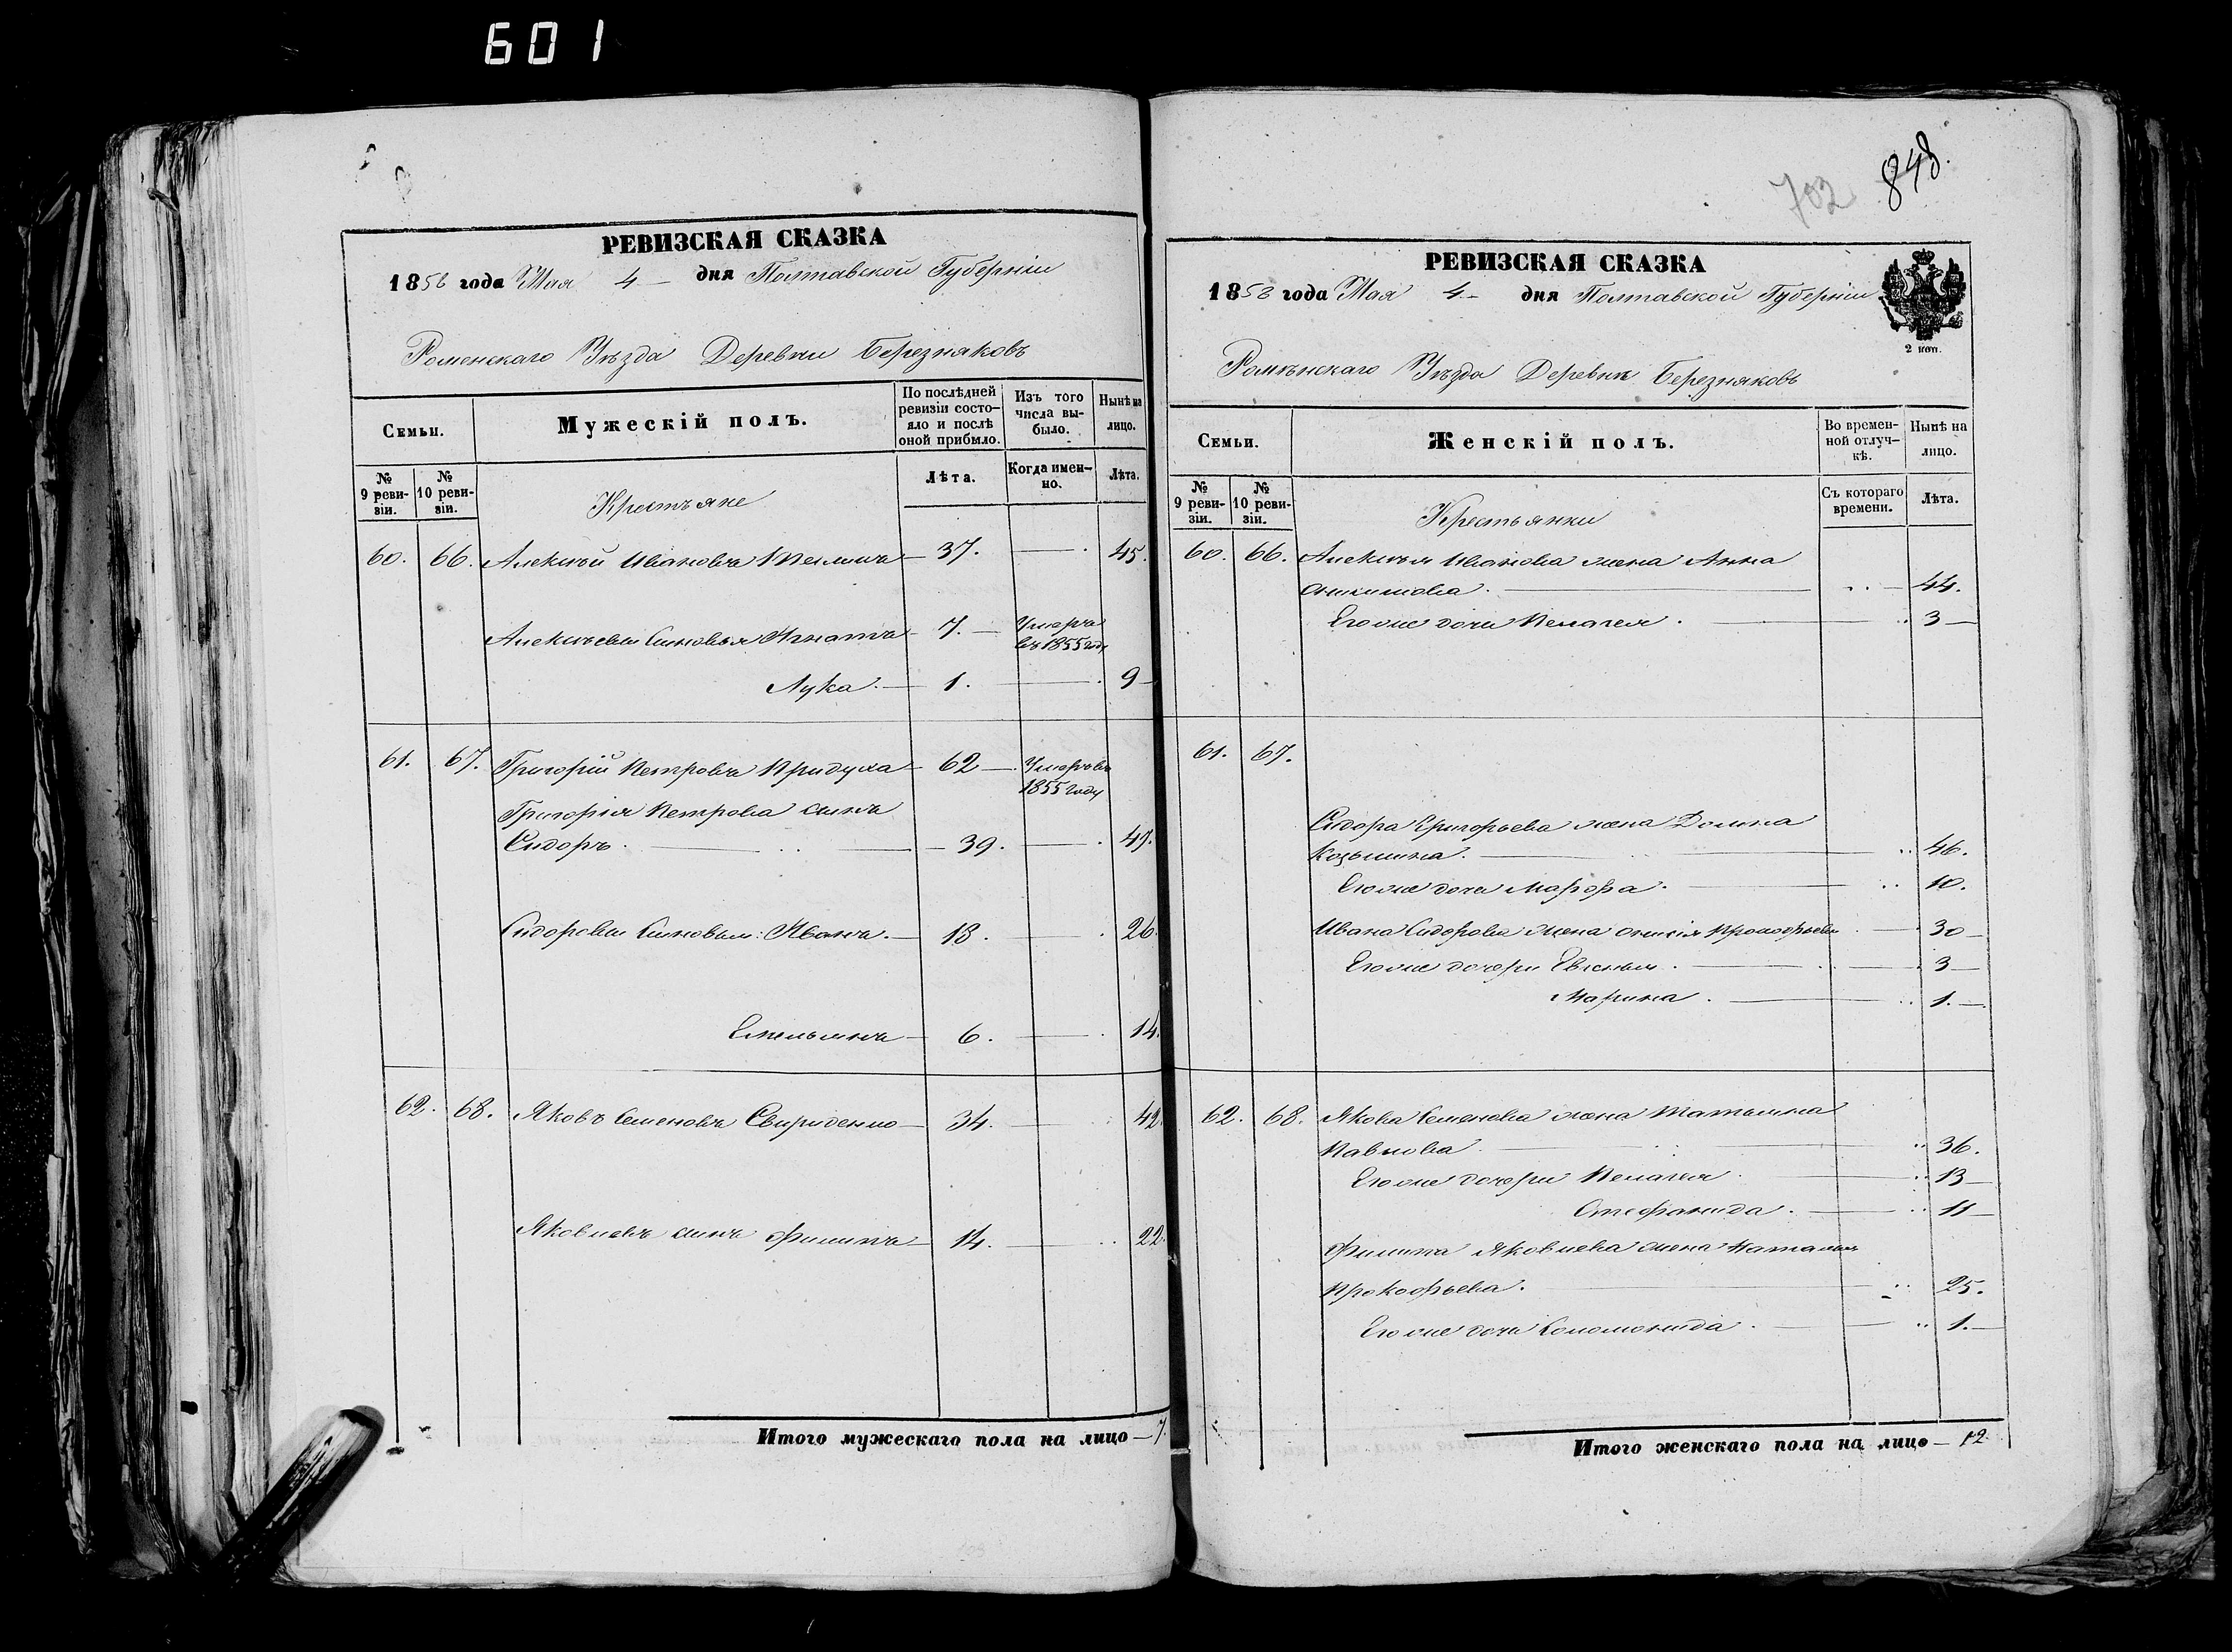 601
РЕВИЗСКАЯ СКАЗКА
1858 года Мая 4 дня Полтавской Губерніи
Роменскаго Уѣзда Деревни Березняковъ
Семьи.
Мужескій полъ.
По послѣдней ревизіи состояло и послѣ оной прибыло.
Изъ того числа выбыло.
Нынѣ на лицо.
№ 9 ревизіи.
№ 10 ревизіи.
Крестьяне
Лѣта.
Когда именно.
Лѣта.
60. 66. Алексѣй Ивановъ 37. 45.
Алексѣевы Сыновья Игнатъ 7. Умеръ въ 1855 году
Лука. 1. 9
61. 67. Григорій Петровъ Придуха 62 Умеръ въ 1855 году
Григорія Петрова сынъ
Сидоръ. 39. 47.
Сидоровы Сыновья: Иванъ. 18. 26.
Емельянъ 6. 14.
62. 68. Яковъ Семеновъ Свириденко 34. 42.
Яковлевъ сынъ Филипъ 14. 22.
Итого мужескаго пола на лицо 7.
702 848.
РЕВИЗСКАЯ СКАЗКА
1858 года Мая 4 дня Полтавской Губерніи
2 коп.
Роменскаго Уѣзда Деревни Березняковъ
Семьи.
Женскій полъ.
Во временной отлучкѣ.
Нынѣ на лицо.
№ 9 ревизіи.
№ 10 ревизіи.
Крестьянки
Съ котораго времени.
Лѣта.
60. 66. Алексѣя Иванова жена Анна
44.
Его же дочь Пелагея. 3
61. 67.
Сидора Григорьева жена Домна
Козьмина. 46.
Его же дочь Марфа. 10.
Ивана Сидорова жена Анисія Прокофьева 30
Его же дочери Евгенья. 3
Марина. 1.
62. 68. Якова Семенова жена Татьяна
Павлова. 36.
Его же дочери Пелагея. 13
Стефанида. 11
Филипа Яковлева жена Наталья
Прокофьева. 25.
Его же дочь Соломонида. 1.
Итого женскаго пола на лицо 12